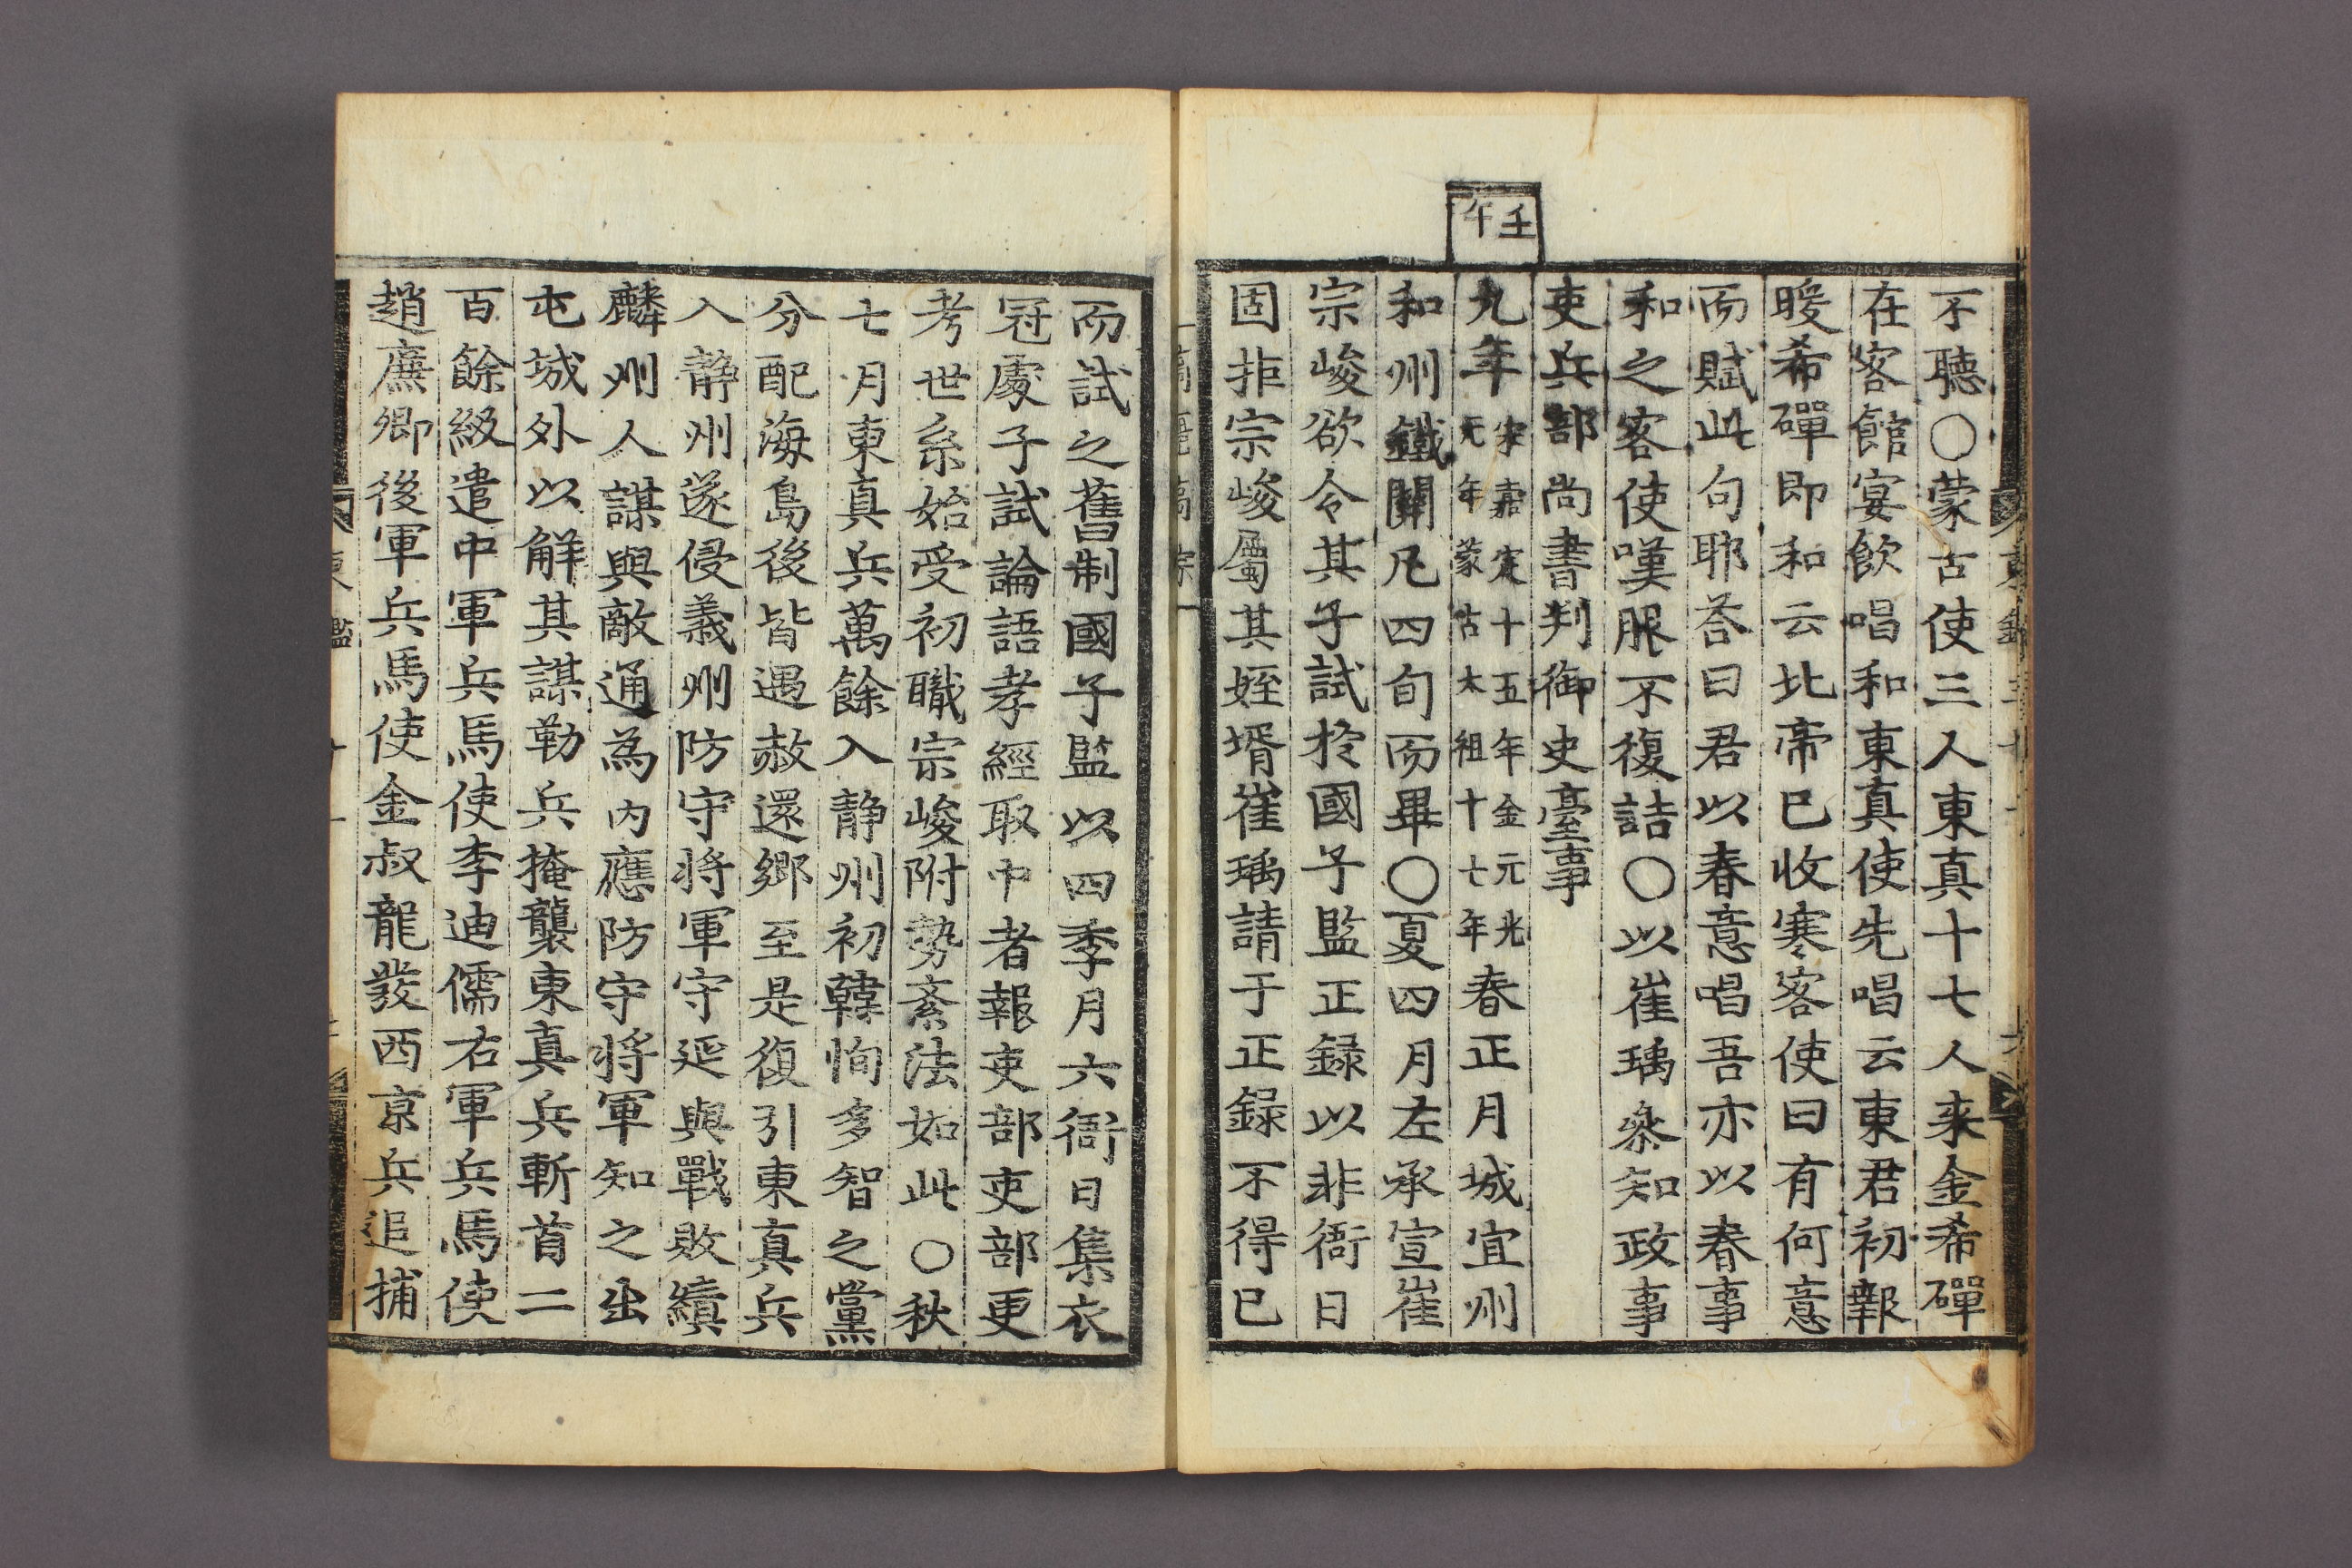 壬午
不聽○蒙古使三人東真十七人来金希磾
在客館宴飮唱和東真使先唱云東君初報
暖希磾即和云北帝已收寒客使曰有何意
而賦此句耶荅曰君以春意唱吾亦以春事
和之客使嘆服不復詰○以崔瑀叅知政事
吏兵部尚書判御史臺事
九年宋嘉定十五年金元光元年蒙古太祖十七年春正月城宜州
和州鐵關凡四旬而畢○夏四月左承宣崔
宗峻欲令其子試於國子監正録以非衙日
固拒宗峻屬其姪壻崔瑀請于正録不得已
而試之舊制國子監以四季月六衙日集衣
冠處子試論語孝經取中者報吏部吏部更
考世系始受初職宗峻附勢紊法如此○秋
七月東真兵萬餘入静州初韓恂多智之黨
分配海島後皆遇赦還鄉至是復引東真兵
入静州遂侵義州防守将軍守延與戰敗績
麟州人謀與敵通為内應防守将軍知之出
屯城外以觧其謀勒兵掩襲東真兵斬首二
百餘級遣中軍兵馬使李迪儒右軍兵馬使
趙廉卿後軍兵馬使金叔龍發西京兵追捕